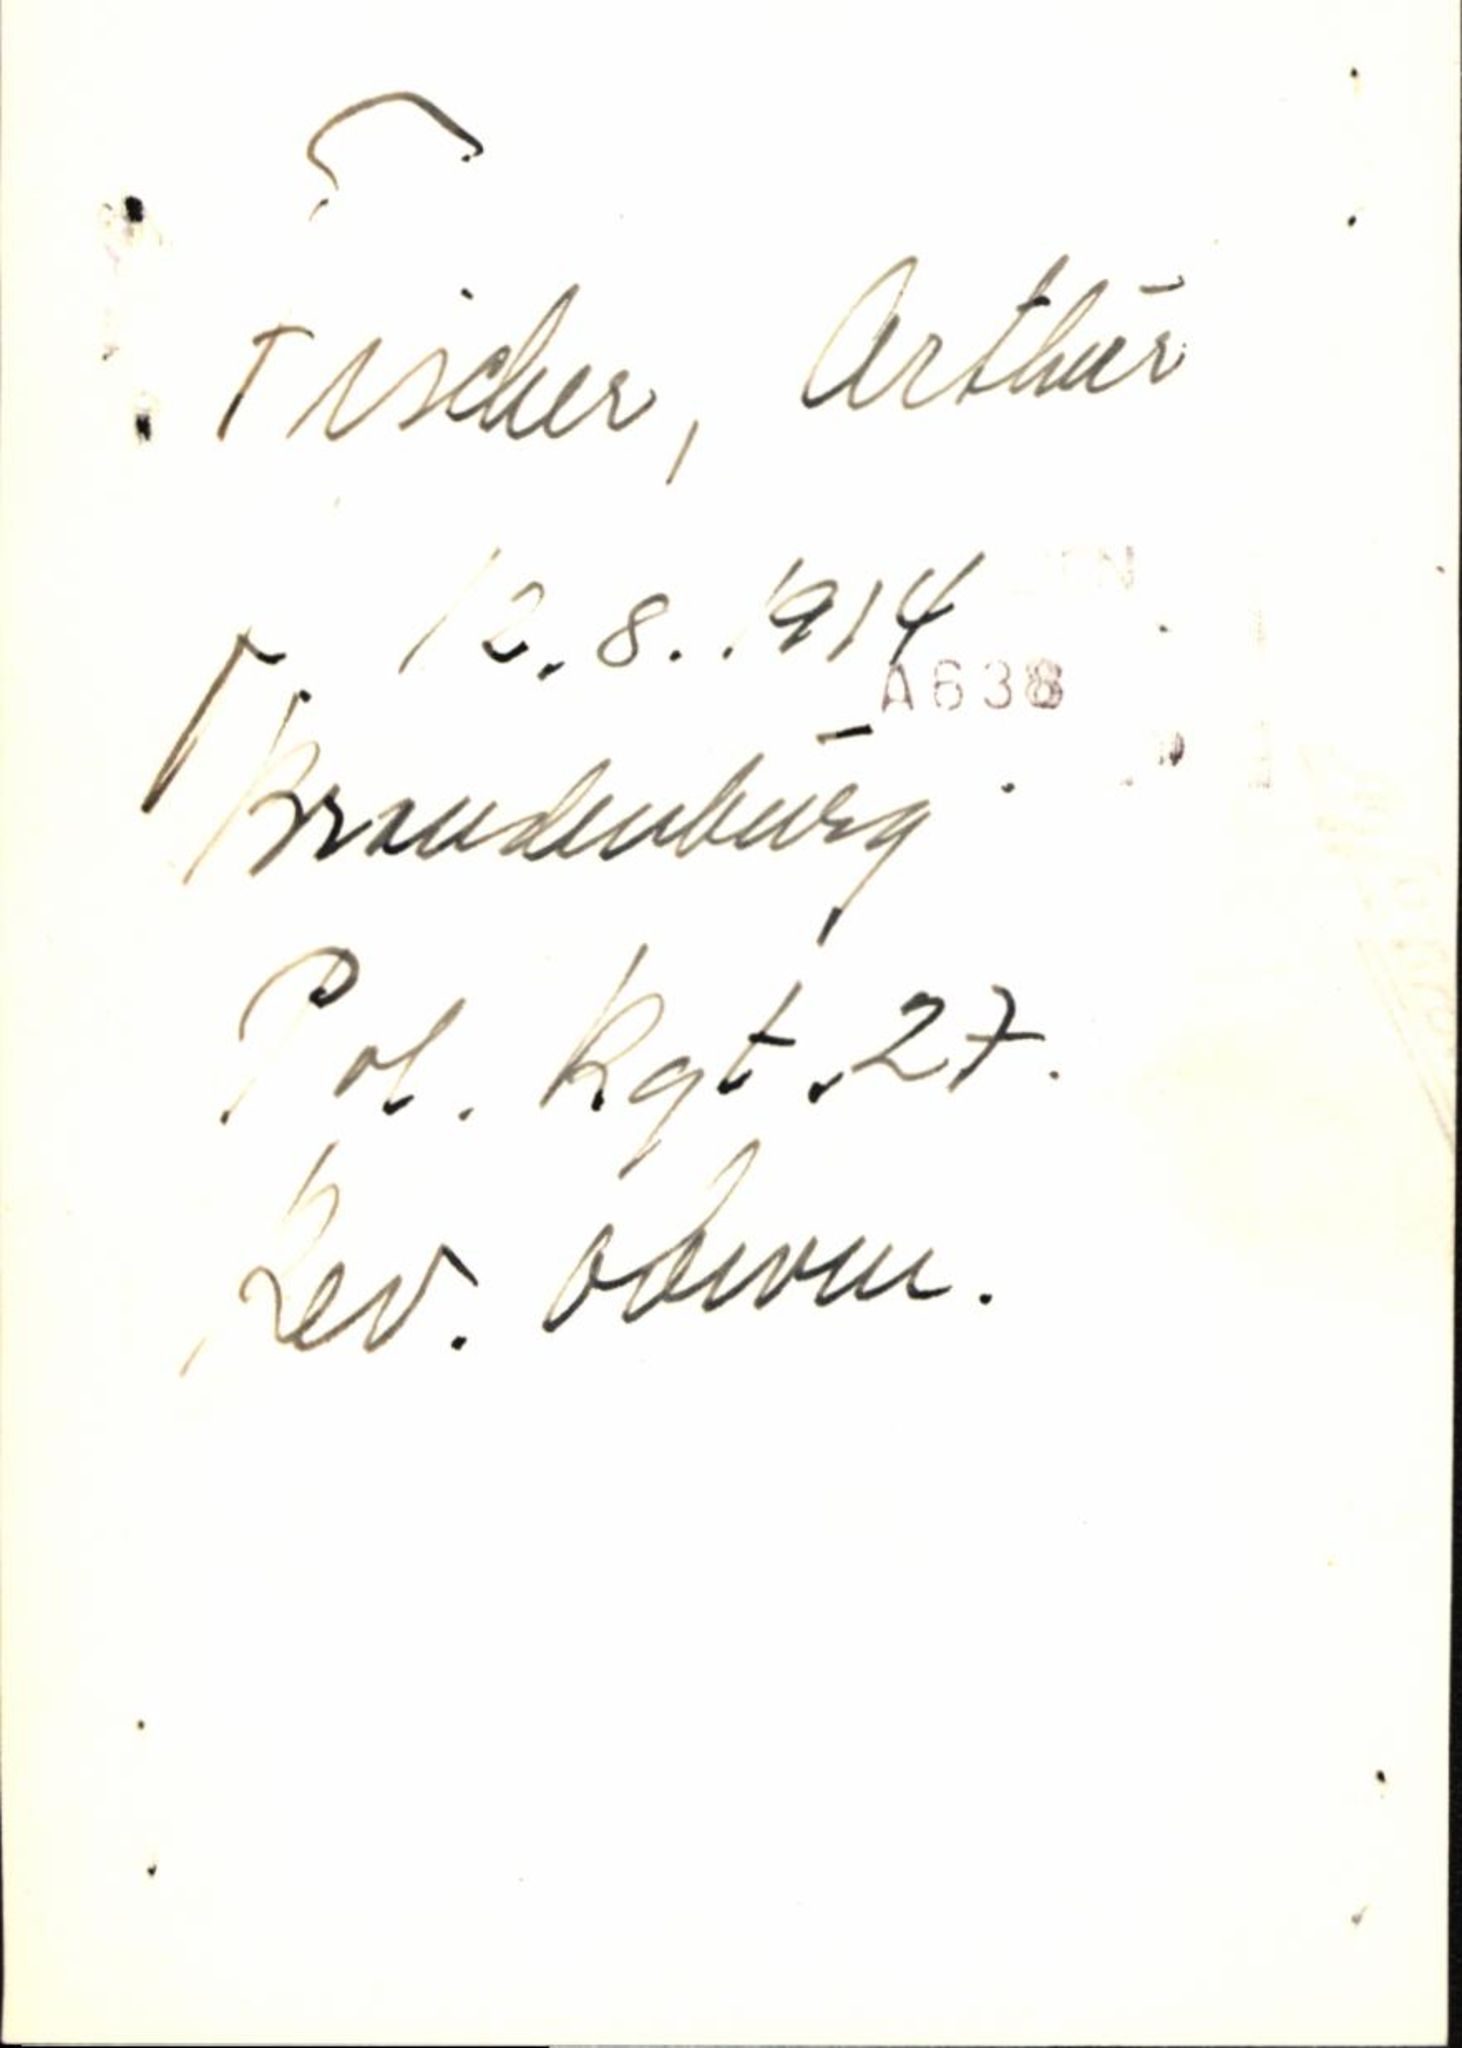 Fischer, Arthur
12.8.1914
A638
Brandenburg
Pol. Rgt. 27.
Rev. Oberwm.